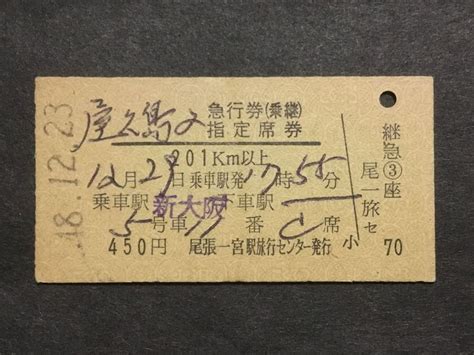 48.12.23
屋久島2 急行券(乗継)
指定席券
201Km以上
12月29日乗車駅発17時55分
乗車駅 新大阪 下車駅
5号車 11番 C席
450円 尾張一宮駅旅行センター発行
継急③座
尾一旅セ
小 70